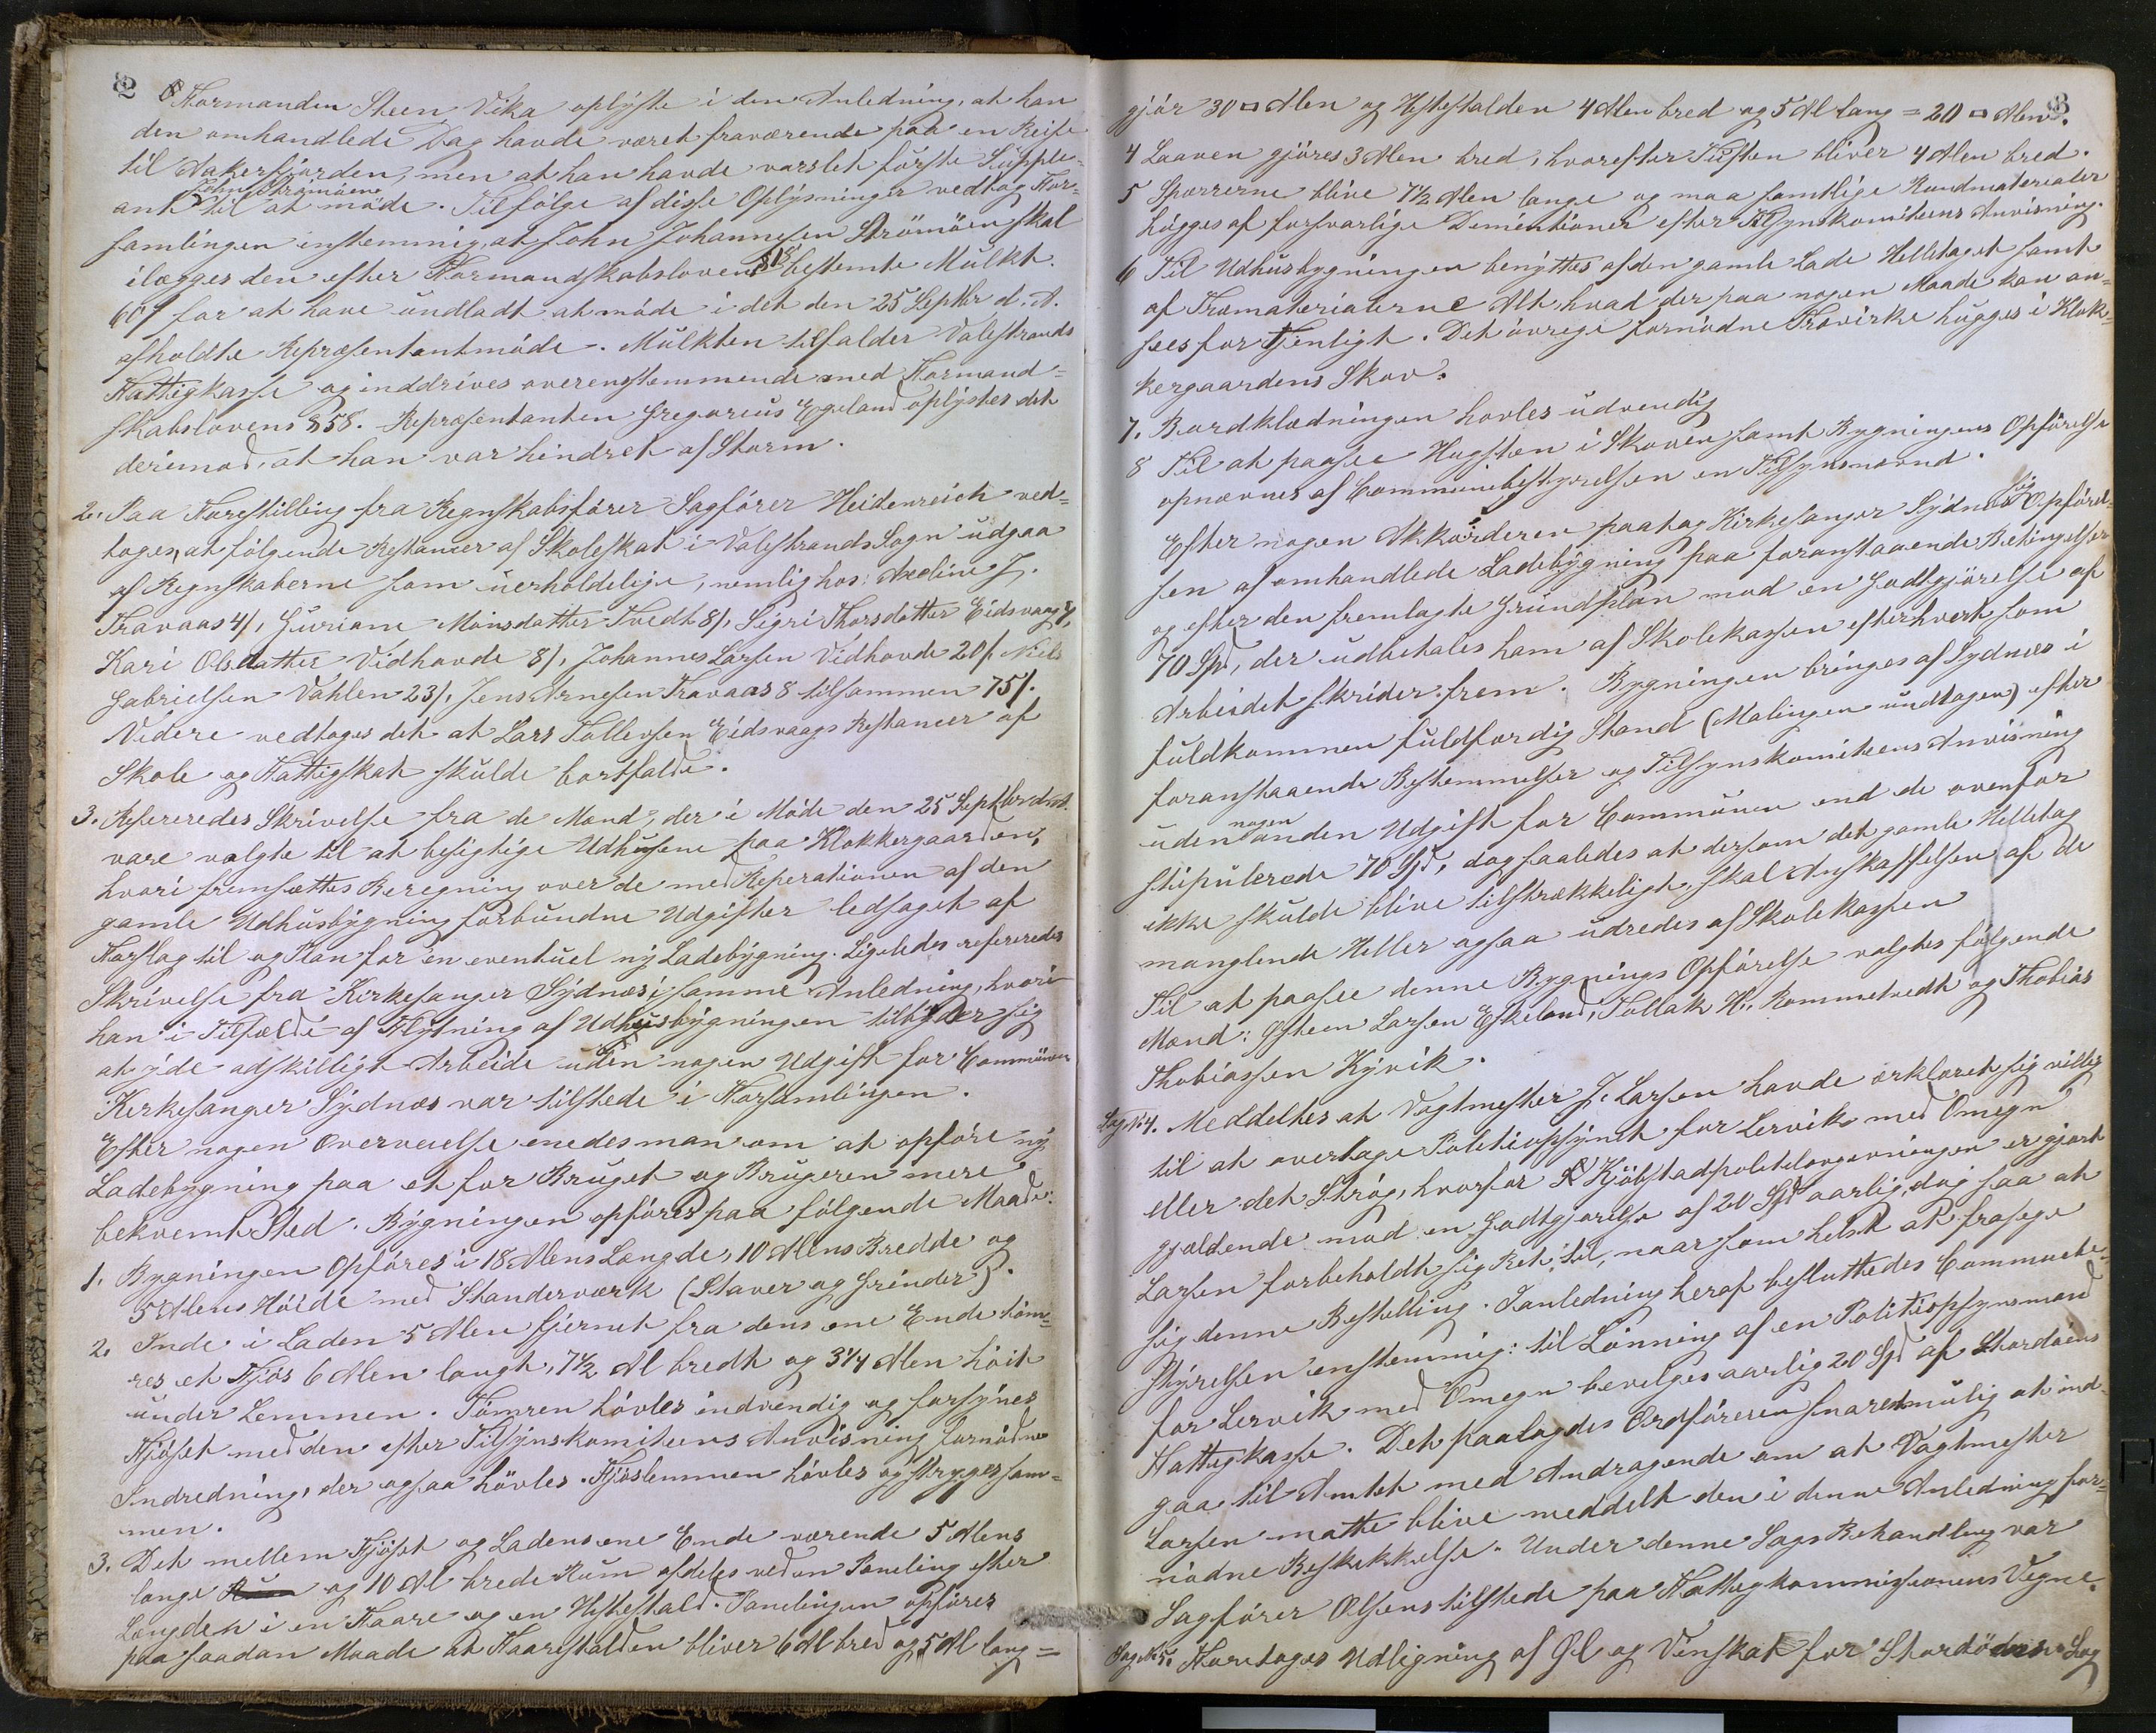 8
Formanden Steen Vika oplyste i den Anledning, at han
den omhandlede Dag havde været fraværende paa en Reise
til Aakerfjorden, men at han havde varslet første Supple-
ant John Strømøen til at møde. Tilfølge af disse Oplysninger vedtog For-
samlingen enstemmig, at John Johannessen Strømøen skal
ilægges den efter Formandskabslovens § 18 bestemte Mulkt.
60 s for at have undladt at møde i det den 25 Septbr d. A.
afholdte Repræsentantmøde. Mulkten tilfalder Valestrands
Fattigkasse og inddrives overensstemmende med Formand-
skabslovens § 58. Repræsentanten Gregorius Egeland oplystes det
derimod, at han var hindret af Storm.
2. Paa Forestilling fra Regnskabsfører Sagfører Heidenreich ved-
toges, at følgende Restancer af Skoleskat i Valestrands Sogn udgaa
af Regnskaberne som uerholdelige, nemlig hos: Axeline J.
Travaas 4 s, Guriane Monsdatter Tvedt 8 s, Sigri Thorsdatter Eidsvaag 8,
Kari Olsdatter Vidhovde 8 s, Johannes Larsen Vidhovde 20 s. Niels
Gabrielsen Vahlen 23 s, Jens Arnesen Travaas 8 tilsammen 75 s.
Videre vedtoges det at Lars Tollevsen Eidsvaags Restancer af
Skole og Fattigskat skulde bortfalde.
3. Refereredes Skrivelse fra de Mænd, der i Møde den 25 Septbr d. A.
vare valgte til at besigtige Udhusene paa Klokkergaarden,
hvori fremsættes Beregning over de med Reperationen af den
gamle Udhusbygning forbundne Udgifter ledsaget af
Forslag til og Plan for en eventuel ny Ladebygning. Ligeledes refereredes
Skrivelse fra Kirkesanger Sydnæs i samme Anledning, hvori
han i Tilfælde af Flytning af Udhusbygningen tilbyder sig
at yde adskilligt Arbeide uden nogen Udgift for Communen
Kirkesanger Sydnæs var tilstede i Forsamlingen.
Efter nogen Overveielse enedes man om at opføre ny
Ladebygning paa et for Bruget og Brugeren mere
bekvemt Sted. Bygningen opføres paa følgende Maade:
1. Bygningen Opføres i 18 Alens Længde, 10 Alens Bredde og
5 Alens Høide med Standerværk (Staver og Grinder).
2. Inde i Laden 5 Alen fjernet fra dens ene Ende tøm-
res et Fjøs 6 Alen langt, 7 1/2 Al bredt og 3 1/4 Alen høit
under Lemmen. Tømren høvles indvendig og forsynes
Fjøset med den efter Tilsynskomiteens Anvisning fornødne
Indredning, der ogsaa høvles. Fjøslemmen høvles og stryges sam-
men.
3. Det mellem Fjøset og Ladens ene Ende værende 5 Alens
lange og 10 Al brede Rum afdeles ved en Paneling efter
Længden i en Faare og en Hestestald. Panelingen opføres
paa saadan Maade at Faarestalden bliver 6 Al bred og 5 Al lang =
gjør 30 □ Alen og Hestestalden 4 Alen bred og 5 Al lang = 20 □ Alen.
4 Laaven gjøres 3 Alen bred, hvorefter bliver 4 Alen bred.
5 Sperrerne blive 7 1/2 Alen lange og maa samtlige Rundmaterialer
hugges af forsvarlige Dimentioner efter Tilsynskomiteens Anvisning.
6 Til Udhusbygningen benyttes af den gamle Lade Helletaget samt
af Træmaterialerne Alt, hvad der paa nogen Maade kan an-
sees for tjenligt. Det øvrige fornødne Trævirke hugges i Klok-
kergaardens Skov.
7. Bordklædningen høvles udvendig
8 Til at paasee Hugsten i Skoven samt Bygningens Opførelse
opnævnes af Communebestyrelsen en Tilsynsnævnd.
Efter nogen Akkorderen paatog Kirkesanger Sydnæs sig Opførel-
sen af omhandlede Ladebygning paa foranstaaende Betingelser
og efter den fremlagte Grundplan mod en Godtgjørelse af
70 Spd, der udbetales ham af Skolekassen efterhvert som
Arbeidet skrider frem. Bygningen bringes af Sydnæs i
fuldkommen fuldfærdig Stand (Malingen undtagen) efter
foranstaaende Bestemmelser og Tilsynskomiteens Anvisning
uden nogen anden Udgift for Communen end de ovenfor
stipulerede 70 Spd, dog saaledes at dersom det gamle Helletag
ikke skulde blive tilstrækkeligt, skal Anskaffelsen af de
manglende Heller ogsaa udredes af Skolekassen
Til at paasee denne Bygnings Opførelse valgtes følgende
Mænd: Østen Larsen Eskeland, Tollak H. Rommetvedt og Thobias
Thobiassen Kyvik.
Sag No 4. Meddeltes at Vagtmester J. Larsen havde erklæret sig villig
til at overtage Politiopsynet for Lervik med Omegn
eller det Strøg, hvorfor Kjøbstadpolitilovgivningen er gjort
gjældende mod en Godtgjørelse af 20 Spd aarlig, dog saa at
Larsen forbeholdt sig Ret til, naar som helst at frasige
sig denne Bestilling. I anledning heraf besluttedes Communebe-
styrelsen enstemmig: til Lønning af en Politiopsynsmand
for Lervik med Omegn bevilges aarlig 20 Spd af Stordøens
Fattigkasse. Det paalagdes Ordføreren snarestmulig at ind-
gaa til Amtet med Andragende om at Vagtmester
Larsen matte blive meddelt den i denne Anledning for-
nødne Beskikkelse. Under denne Sags Behandling var
Sagfører Olsen tilstede paa Fattigkommissionens Vegne.
Sag No 5. Foretoges Udligning af Øl og Vinskat for Stordøens Sog